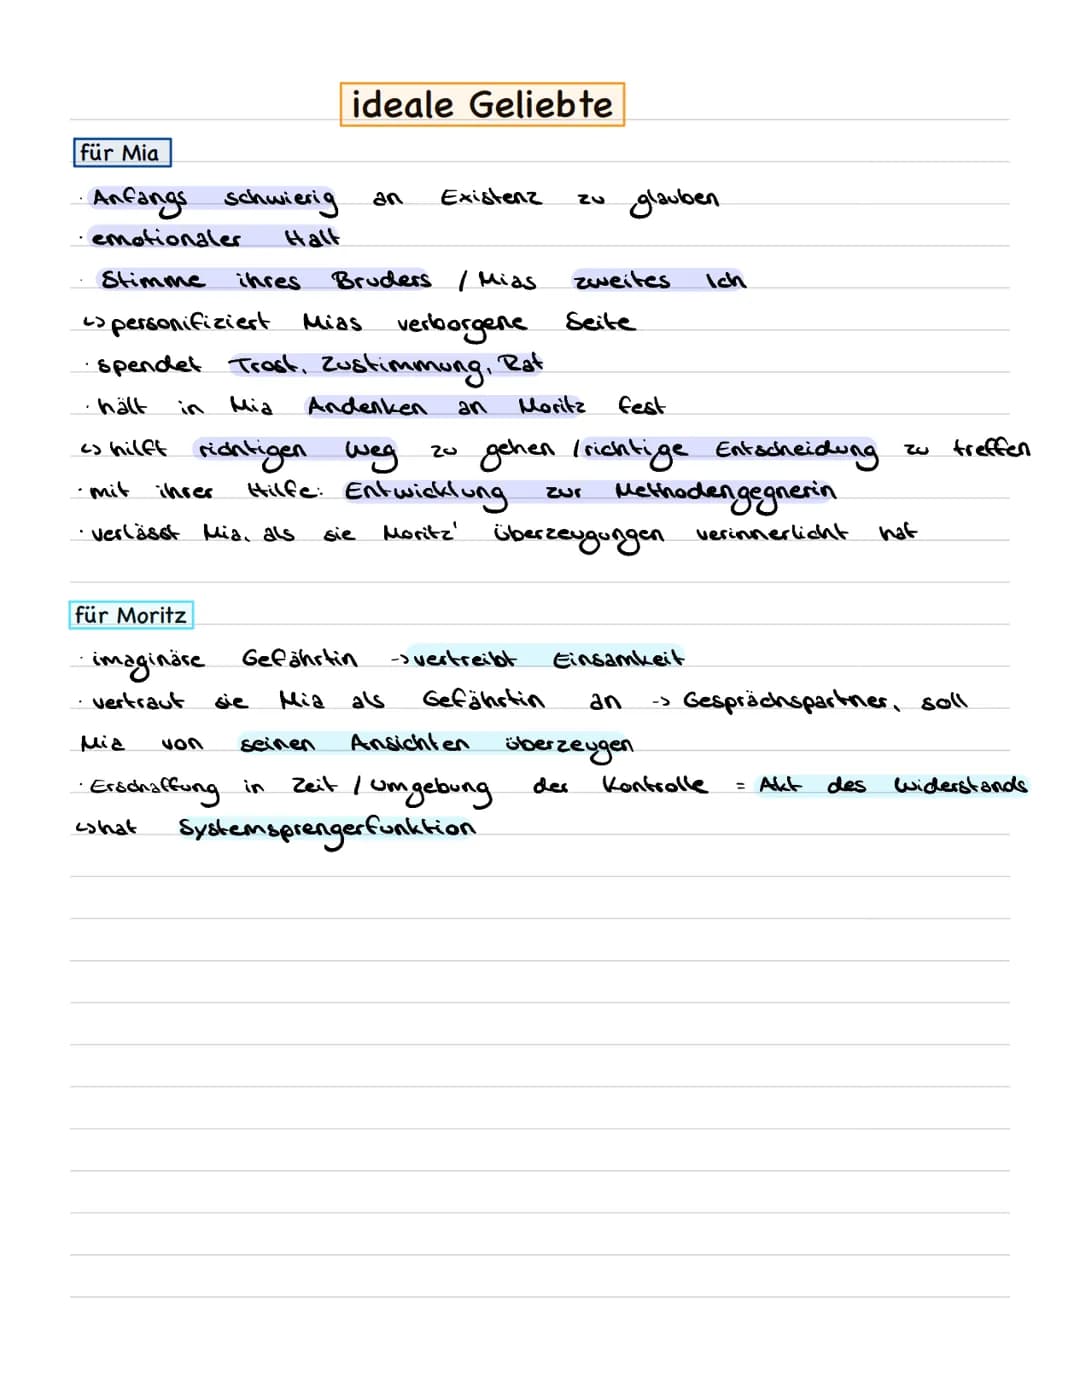 ideale Geliebte
für Mia
· Anfangs schwierig an Existenz zu glauben
· emotionaler Halt
· Stimme ihres Bruders / Mias zweites Ich
↳ personifiziert Mias verborgene Seite
· spendet Trost, Zustimmung, Rat
· hält in Mia Andenken an Moritz fest
↳ hilft richtigen Weg zu gehen / richtige Entscheidung zu treffen
· mit ihrer Hilfe: Entwicklung zur Methodengegnerin
· verlässt Mia, als sie Moritz' Überzeugungen verinnerlicht hat
für Moritz
· imaginäre Gefährtin -> vertreibt Einsamkeit
· vertraut sie Mia als Gefährtin an -> Gesprächspartner, soll
Mia von seinen Ansichten überzeugen
· Erschaffung in Zeit / Umgebung der Kontrolle = Akt des Widerstands
↳ hat Systemsprengerfunktion